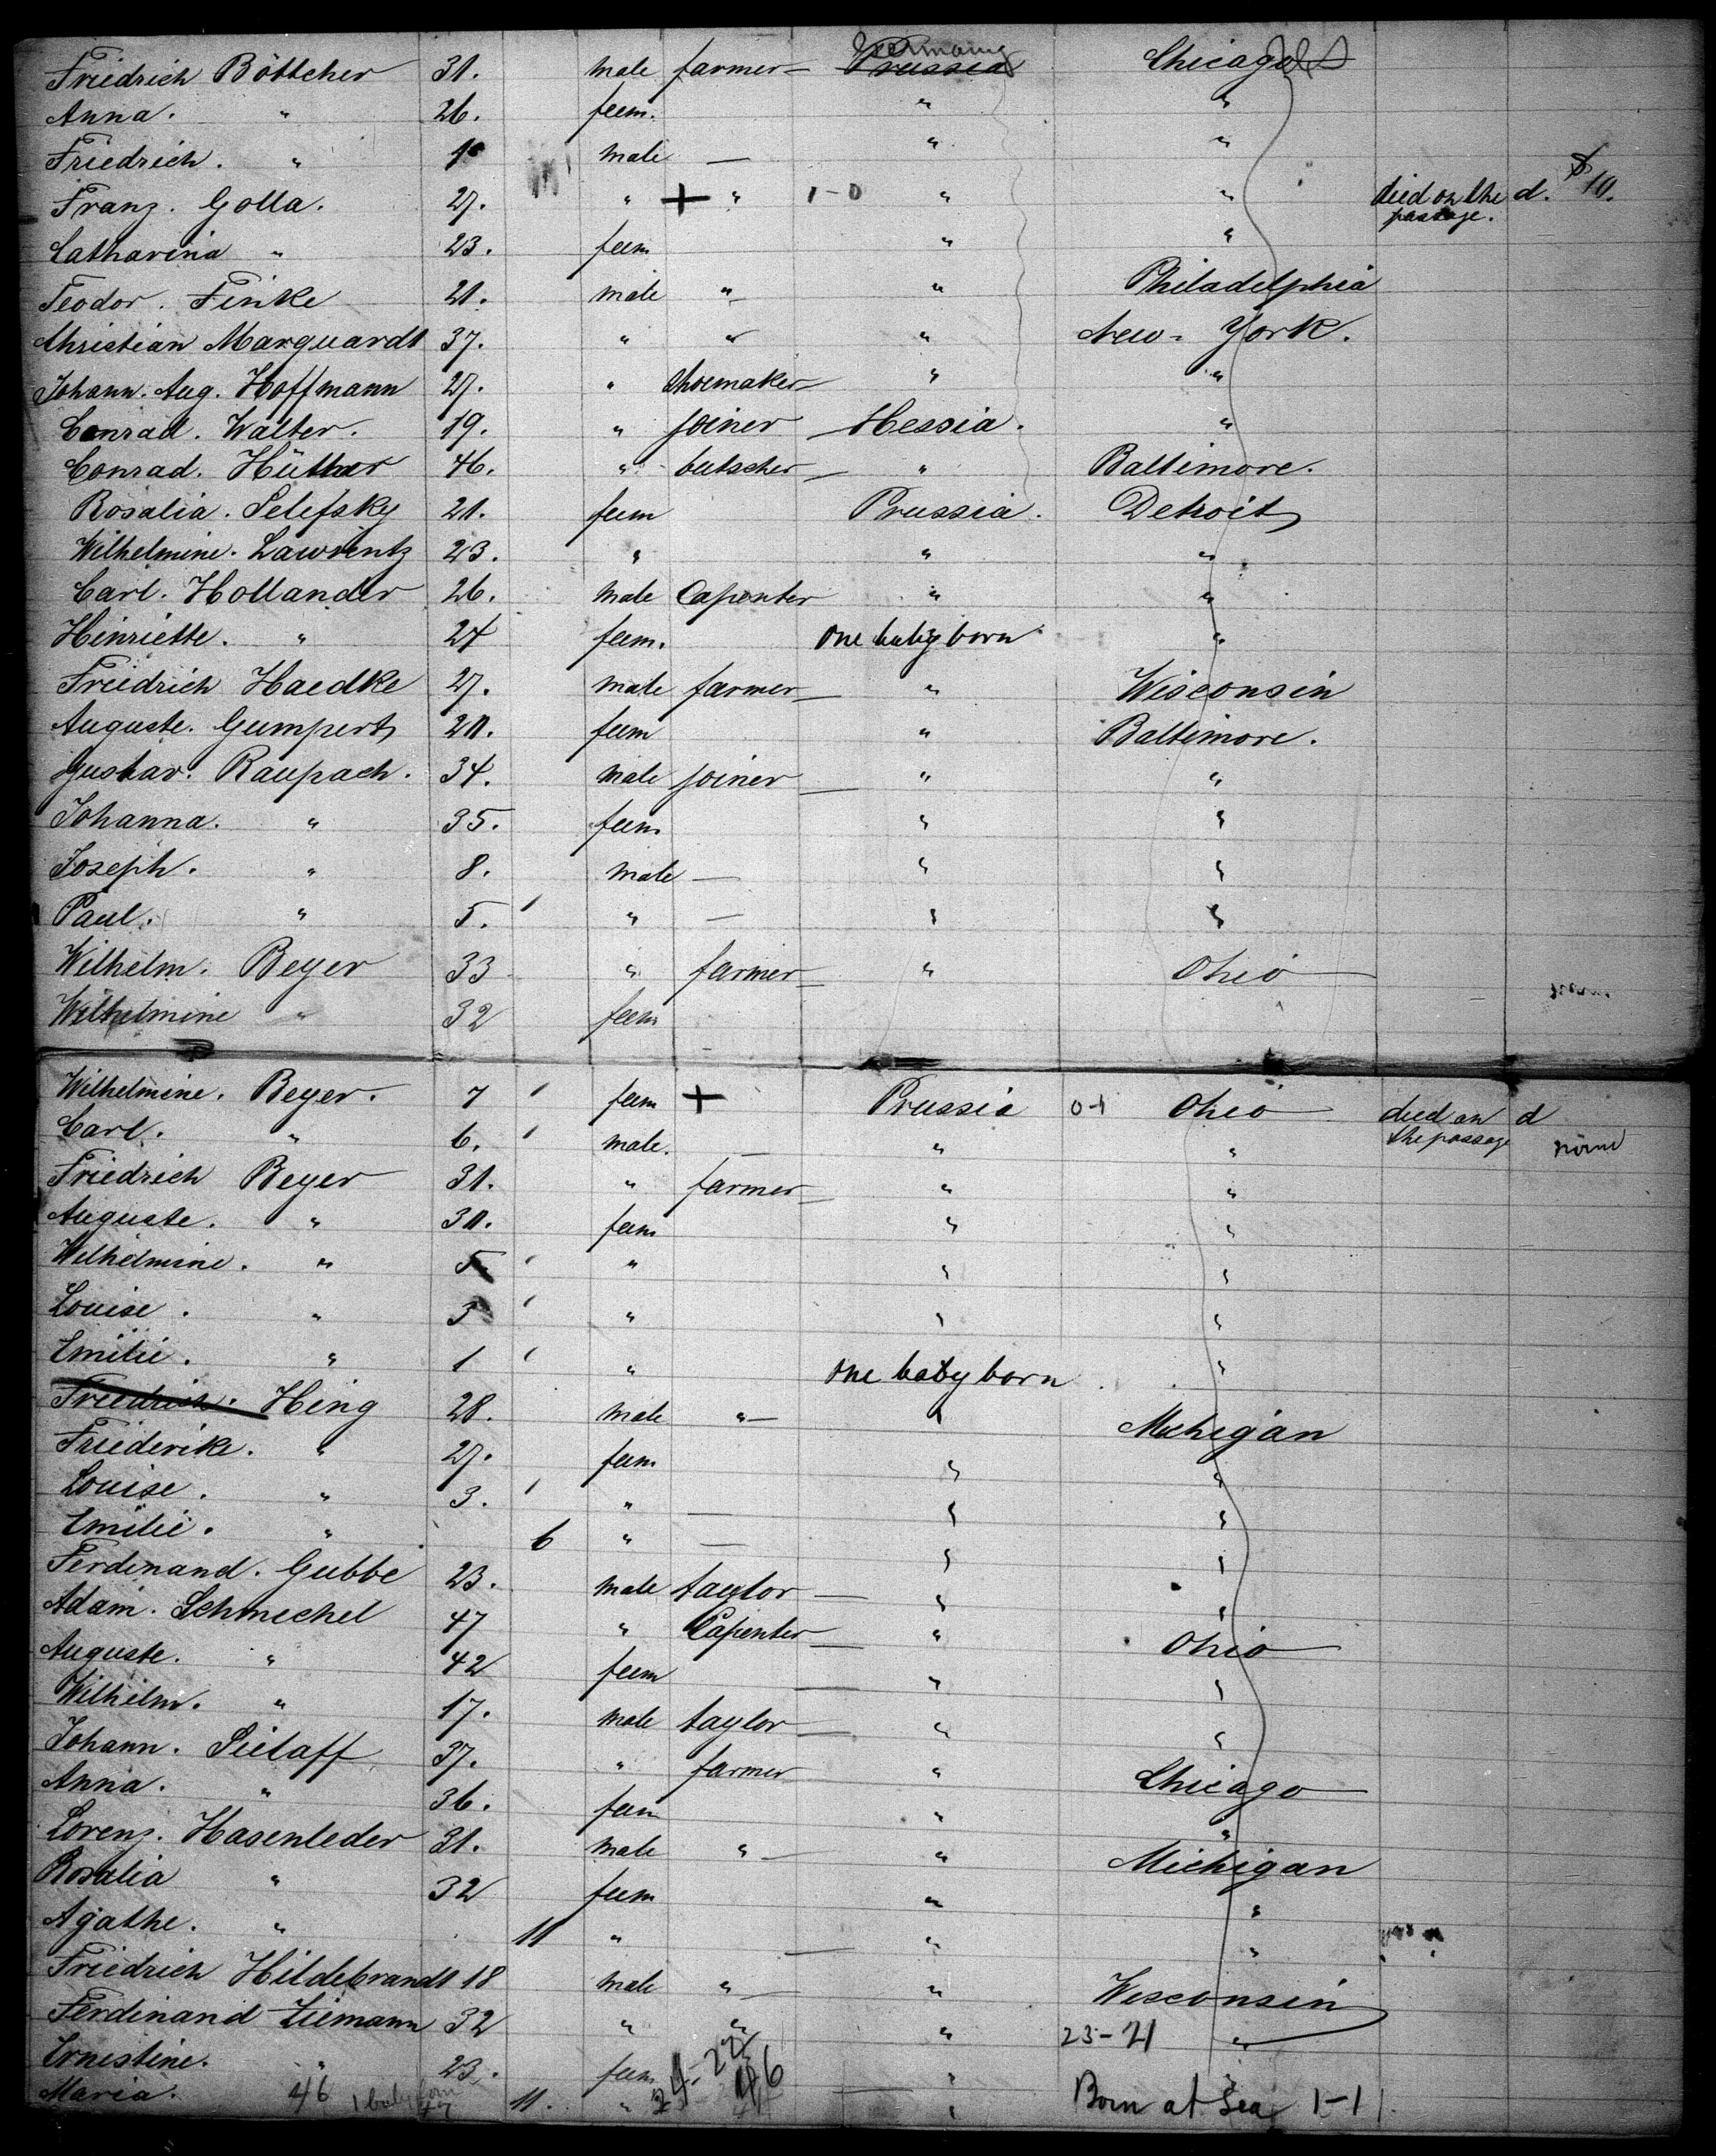 Friedrich Böttcher 31. male farmer— Germany Prussia Chicago
Anna. " 26. feem. " "
Friedrich. " 1 male — " "
Franz. Golla. 27. " + " 1-0 " " died on the passage. d. $10.
Catharina " 23. feem " "
Teodor. Finke 21. male " " Philadelphia
Christian Marquardt 37. " " " New-York.
Johann. Aug. Hoffmann 27. " shoemaker— " "
Conrad. Walter. 19. " joiner — Hessia. "
Conrad. Hüther 46. " butscher — " Baltimore.
Rosalia. Selefsky 21. feem Prussia. Detroit
Wilhelmine. Lawrentz 23. " " "
Carl. Hollander 26. male Capenter " "
Henriette. " 24 feem. one baby born "
Friedrich Haedke 27. male farmer— " Wisconsin
Auguste. Gumpert 20. feem " Baltimore.
Gustav. Raupach. 34. male joiner — " "
Johanna. " 35. feem " "
Joseph. " 8. male — " "
Paul. " 5. ' " — " "
Wilhelm. Beyer 33 " farmer— " Ohio
Wilhelmine " 32 feem
Wilhelmine. Beyer. 7 ' feem + Prussia 0-1 Ohio died on the passage d
Carl. " 6. ' male. — " "
Friedrich Beyer 31. " farmer— " "
Auguste. " 30. feem " "
Wilhelmine. " 5 ' " " "
Louise. " 3 ' " " "
Emilie. " 1 ' " one baby born "
Friedrich. Hing 28. male "— " Michigan
Friederike. " 27. feem " "
Louise. " 3. ' " — " "
Emilie. " 6 " — " "
Ferdinand. Gubbe 23. male taylor — " "
Adam. Schmechel 47 " Capenter — " Ohio
Auguste. " 42 feem — " "
Wilhelm. " 17. male taylor — " "
Johann. Sielaff 37. " farmer " Chicago
Anna. " 36. feem " "
Lorenz. Hasenleder 31. male "— " Michigan
Rosalia " 32 feem " "
Agathe. " 11 " — " "
Friedrich Hildebrandt 18 male "— " Wisconsin
Ferdinand Ziemann 32 " " " 23-21 "
Ernestine. " 23. feem 24-22 46 " "
Maria. " 46 1 baby 11. " — " Born at Sea 1-1